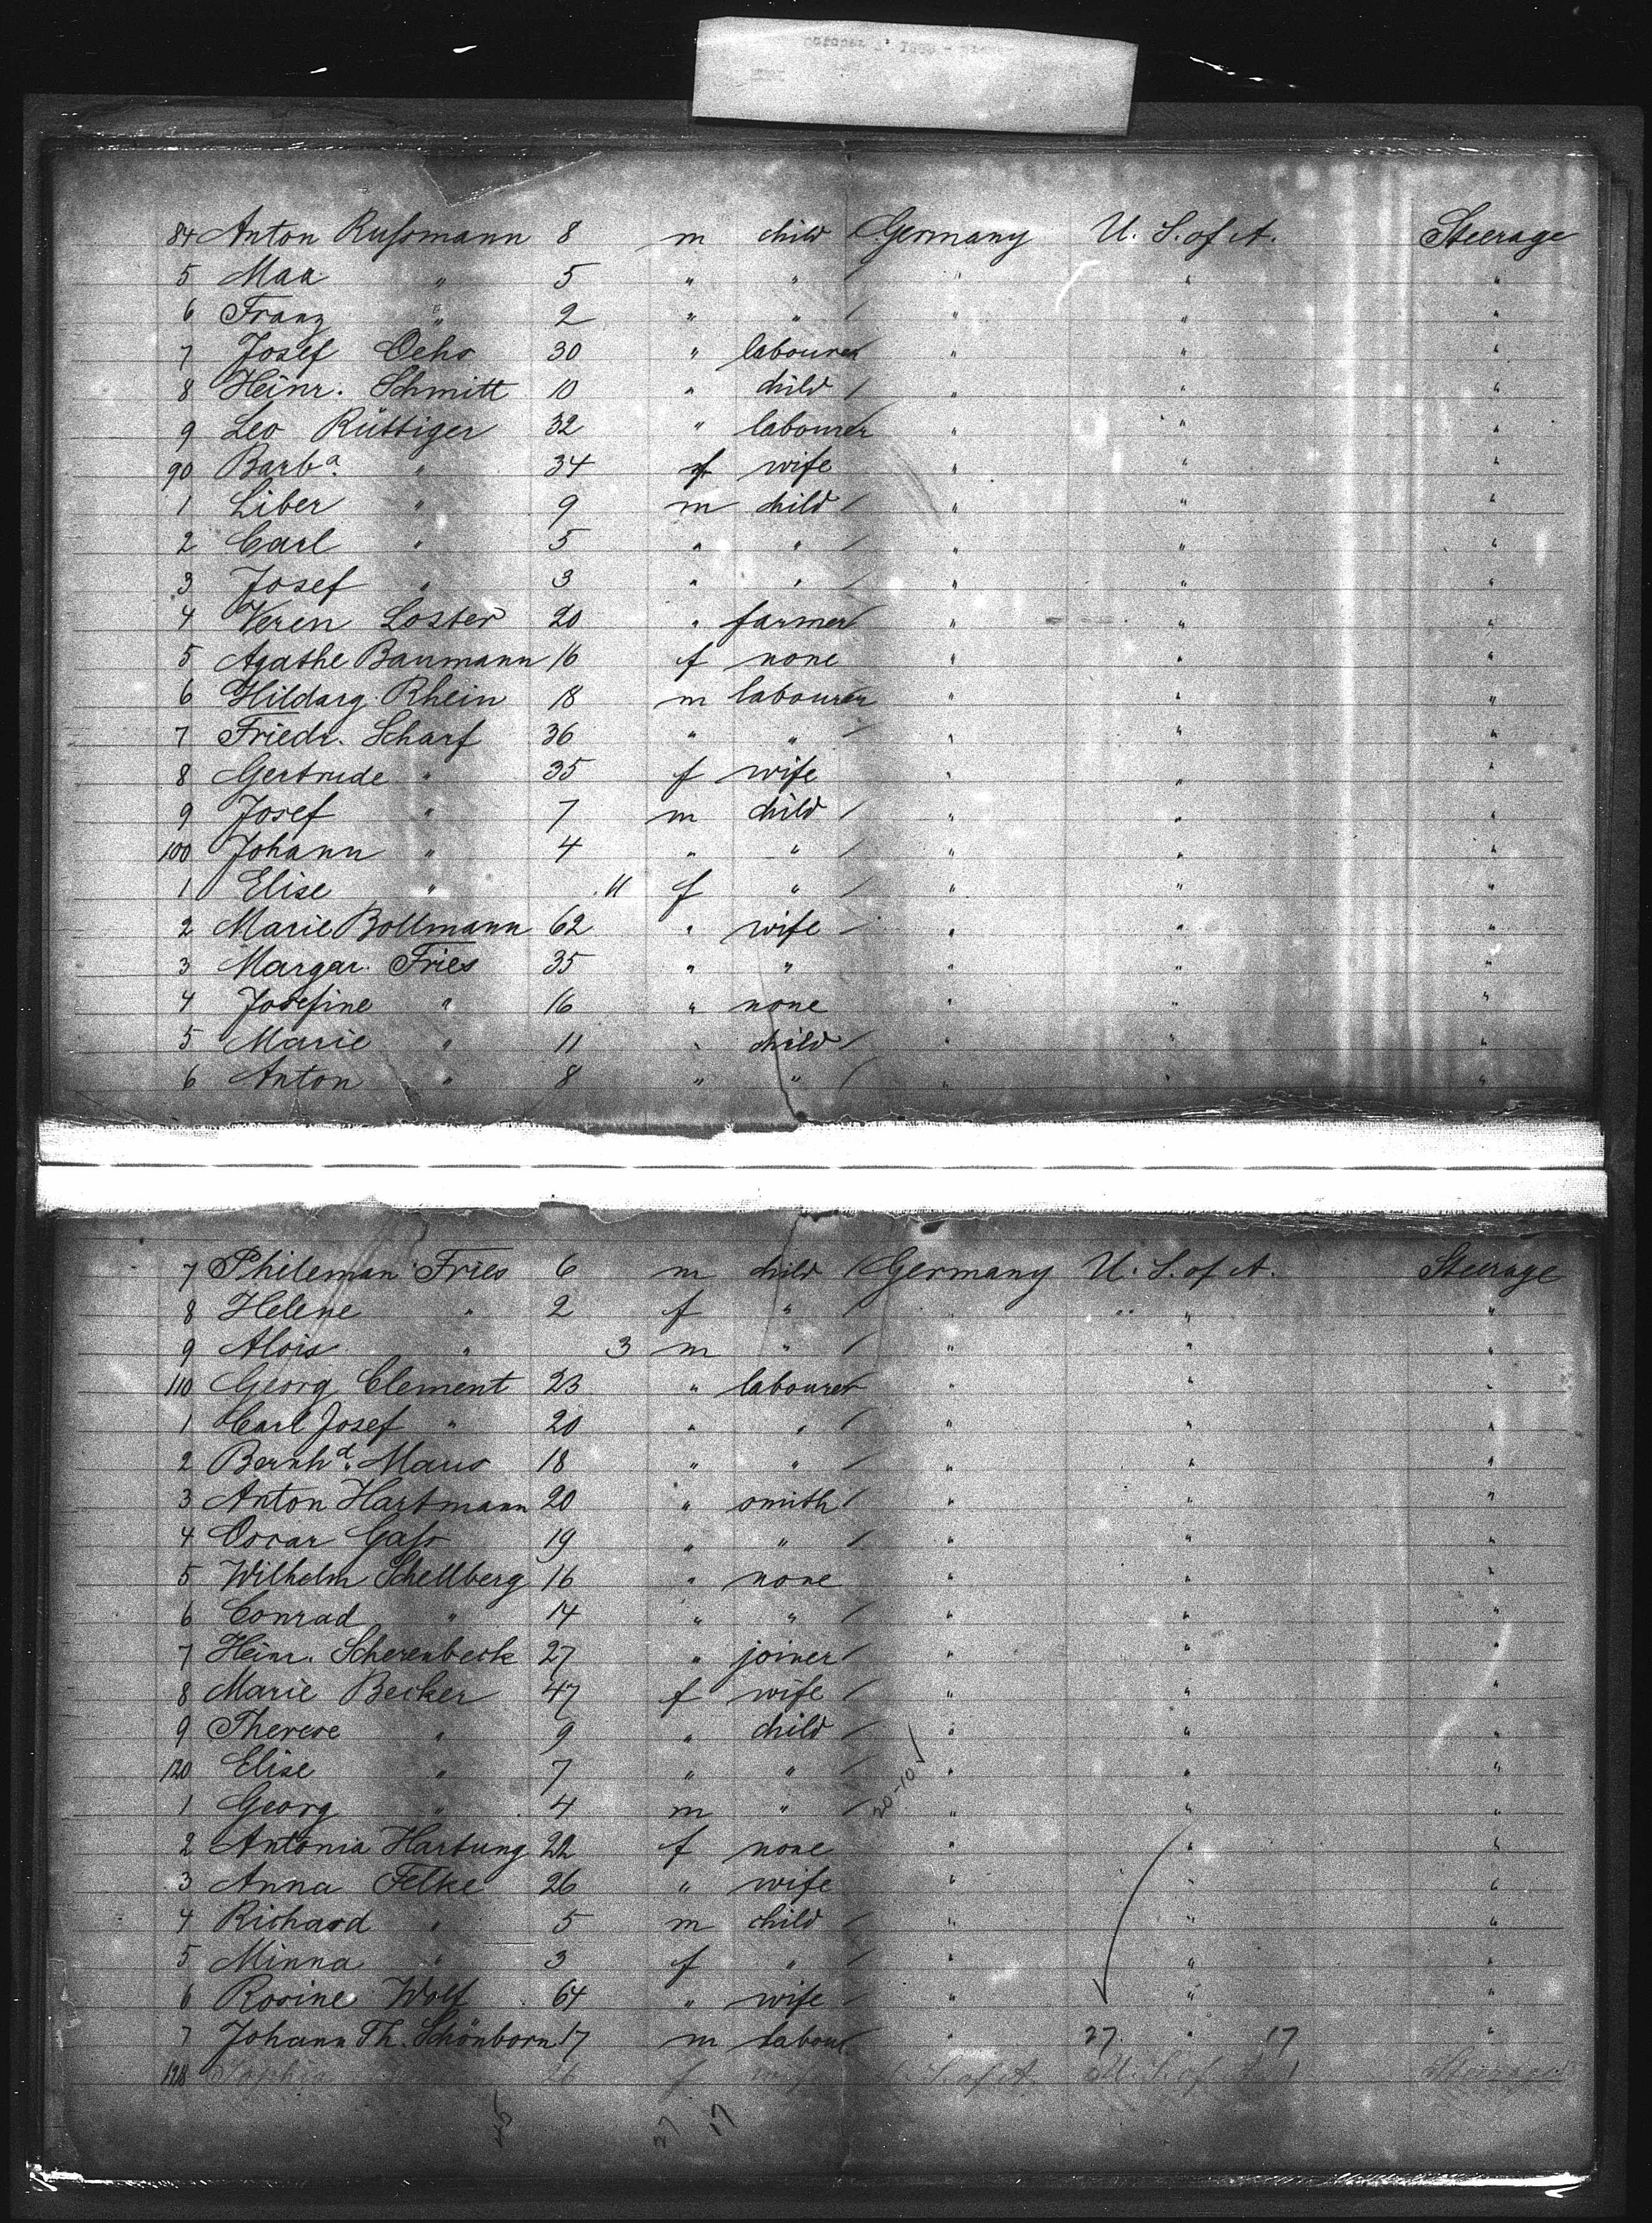 84 Anton Rußmann 8 m child Germany U. S. of A. Steerage
5 Max " 5 " " " " "
6 Franz " 2 " " " " "
7 Josef Ochs 30 " labourer " " "
8 Heinr. Schmitt 10 " child " " "
9 Leo Rüttiger 32 " labourer " " "
90 Barba. " 34 f wife " " "
1 Liber " 9 m child " " "
2 Carl " 5 " " " " "
3 Josef " 3 " " " " "
4 Veren Loster 20 " farmer " " "
5 Agathe Baumann 16 f none " " "
6 Hildarg. Rhein 18 m labourer " " "
7 Friedr. Scharf 36 " " " " "
8 Gertrude " 35 f wife " " "
9 Josef " 7 m child " " "
100 Johann " 4 " " " " "
1 Elise " .11 f " " " "
2 Marie Bollmann 62 " wife " " "
3 Margar. Fries 35 " " " " "
4 Josefine " 16 " none " " "
5 Marie " 11 " child " " "
6 Anton " 8 " " " " "
7 Phileman Fries 6 m child Germany U. S. of A. Steerage
8 Helene " 2 f " " " "
9 Alois " 3 m " " " "
110 Georg Clement 23 " labourer " " "
1 Carl Josef " 20 " " " " "
2 Bernhd. Maus 18 " " " " "
3 Anton Hartmann 20 " smith " " "
4 Oscar Gaß 19 " " " " "
5 Wilhelm Schellberg 16 " none " " "
6 Conrad " 14 " " " " "
7 Heinr. Scherenbeck 27 " joiner " " "
8 Marie Becker 47 f wife " " "
9 Therese " 9 " child " " "
120 Elise " 7 " " " " "
1 Georg " 4 m " 20-10 " " "
2 Antonia Hartung 22 f none " " "
3 Anna Felke 26 " wife " " "
4 Richard " 5 m child " " "
5 Minna " 3 f " " " "
6 Rosine Wolf 64 " wife " " "
7 Johann Th. Schönborn 17 m labour " 27 " 17 "
128 Sophie 26 f wife U. S. of A. U. S. of A. 1 Steerage
27 17